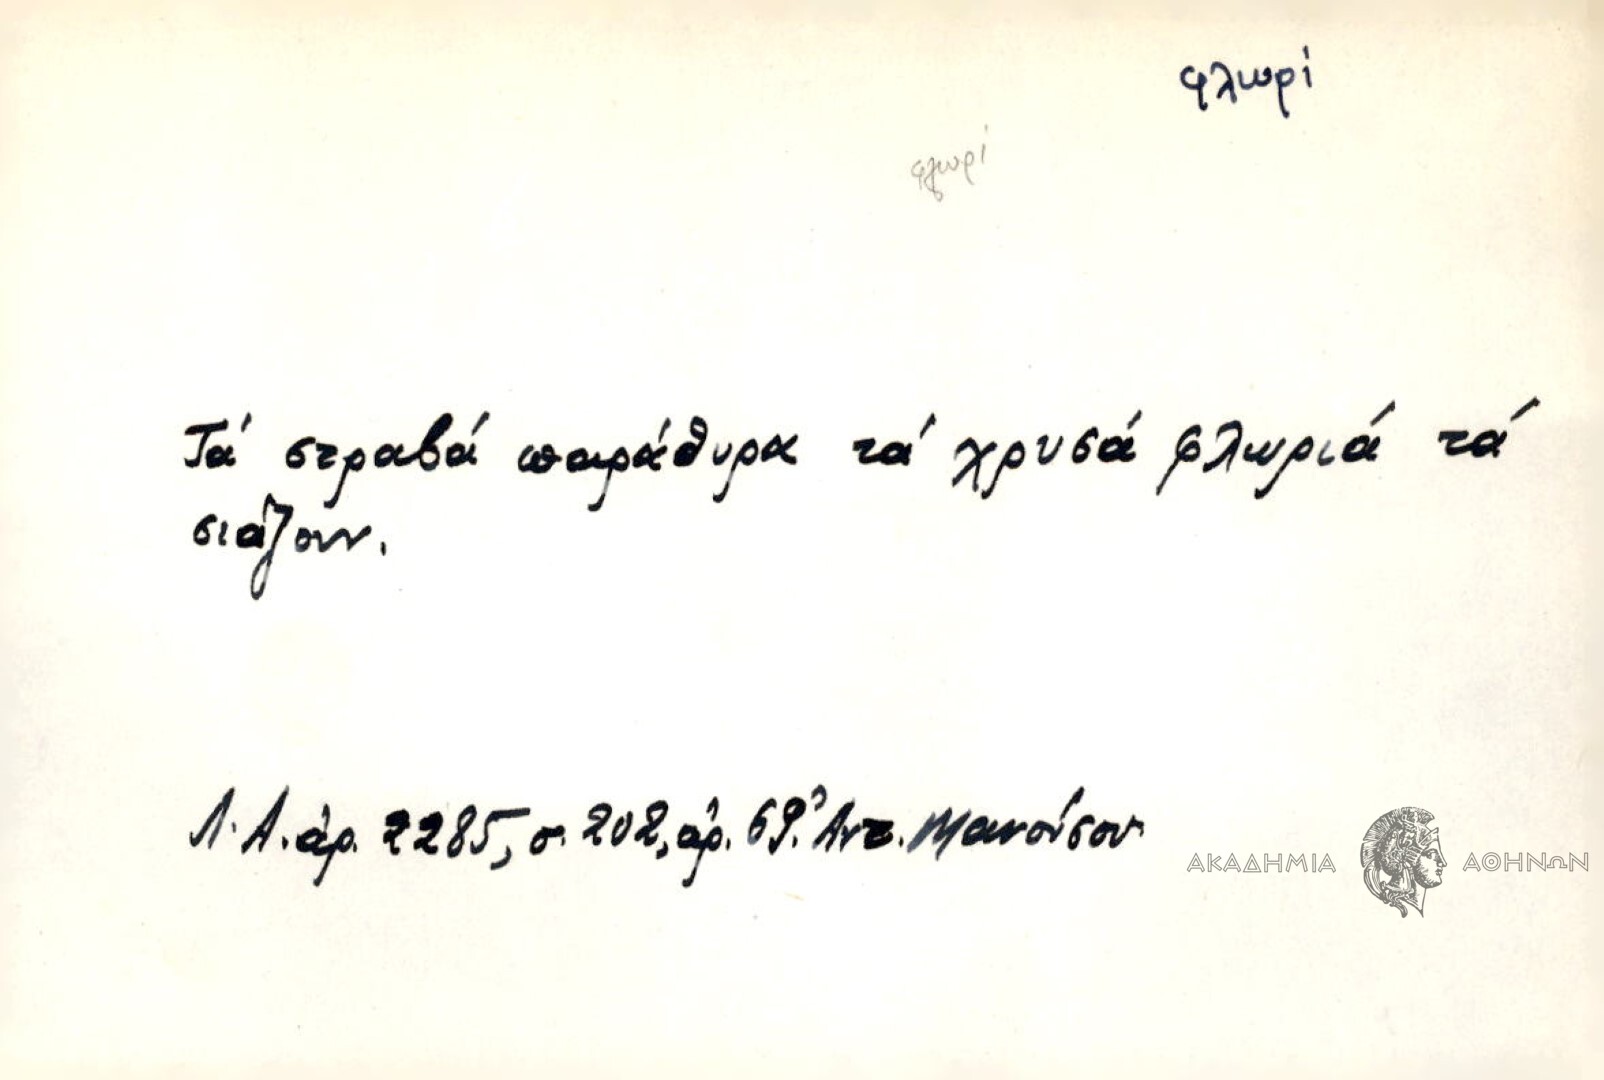 φλωρί
φλωρί
Τά στραβά παράθυρα τά χρυσά φλωριά τά
σιάζουν.
Λ.Α. ἀρ. 2285, σ. 202, ἀρ. 69. Ἀντ. Μανούσου
ΑΚΑΔΗΜΙΑ ΑΘΗΝΩΝ